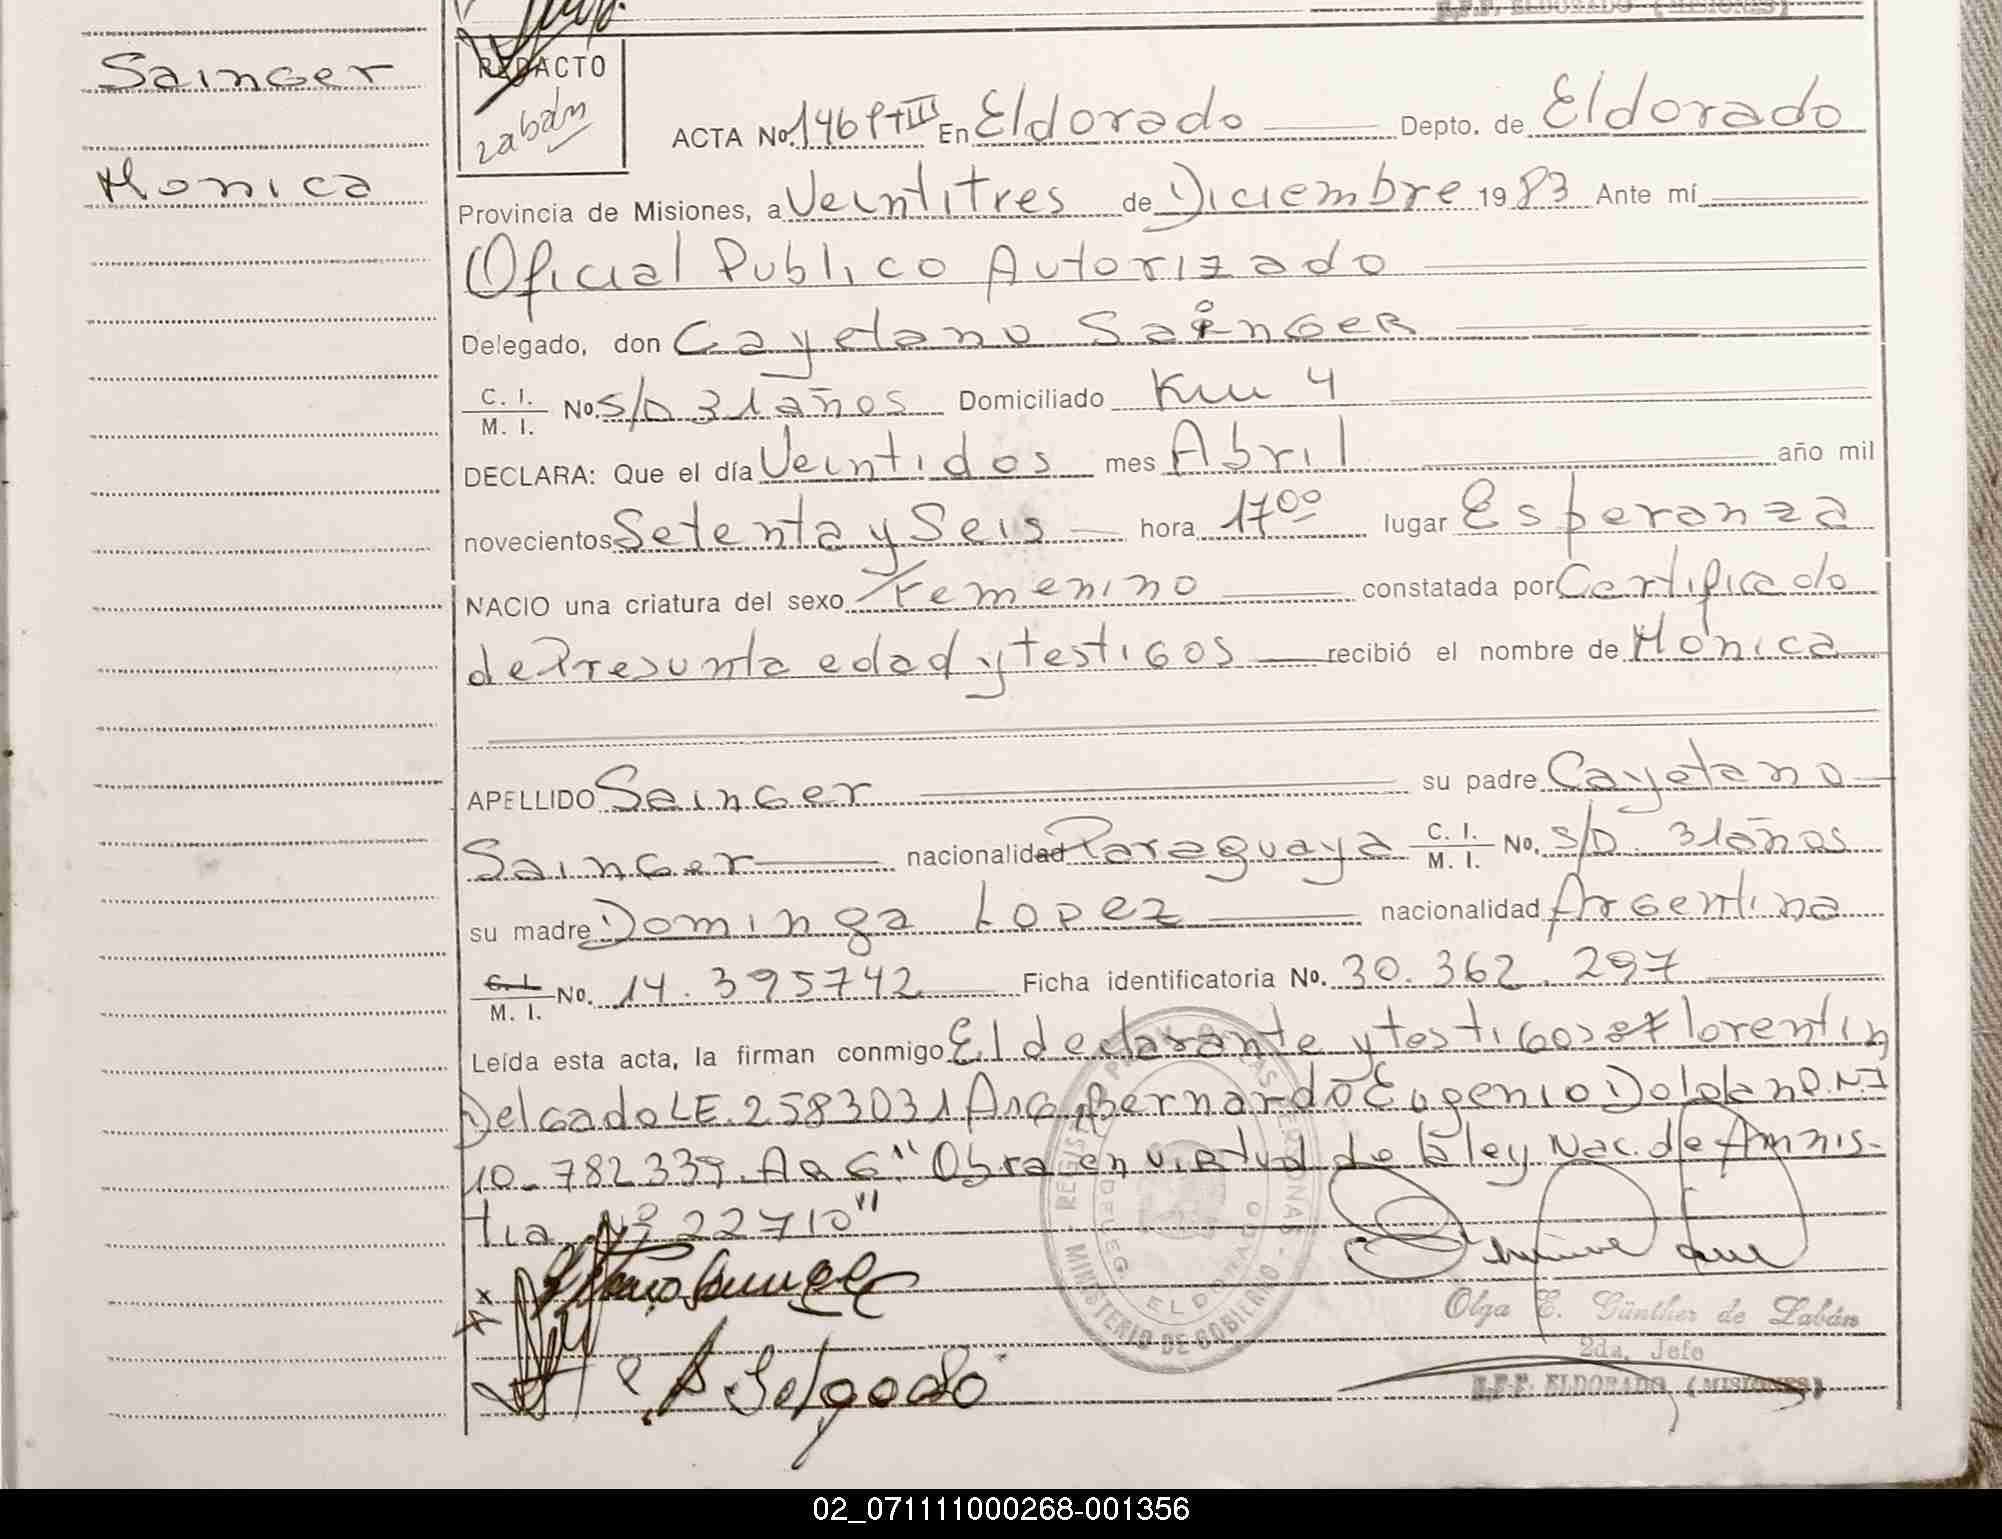 E.F.F. ELDORADO (MISIONES)
Sainger
Monica
REDACTO
zabán
ACTA No. 1469 T III En Eldorado Depto. de Eldorado
Provincia de Misiones, a Veintitres de Diciembre 1983 Ante mí
Oficial Publico Autorizado
Delegado, don Cayetano Sainger
C. I. / M. I. No. S/D 31 años Domiciliado Km 4
DECLARA: Que el día Veintidos mes Abril año mil
novecientos Setenta y Seis hora 17⁰⁰ lugar Esperanza
NACIO una criatura del sexo Femenino constatada por Certificado
de Presunta edad y testigos recibió el nombre de Mónica
APELLIDO Sainger su padre Cayetano
Sainger nacionalidad Paraguaya C. I. / M. I. No. S/D. 31 años
su madre Dominga Lopez nacionalidad Argentina
C. I. / M. I. No. 14.395742 Ficha identificatoria No. 30.362.297
Leída esta acta, la firman conmigo El declarante y testigos Florentin
Delgado LE. 2583031 Arg. Bernardo Eugenio D.N.I
10-782339. "Obra en virtud de la ley Nac. de Amnis-
tia Nº 22710"
REGISTRO PROV. DE LAS PERSONAS
DELEG. ELDORADO
MINISTERIO DE GOBIERNO
Delgado
Olga E. Günther de Zabán
2da. Jefe
E.F.F. ELDORADO (MISIONES)
02_071111000268-001356